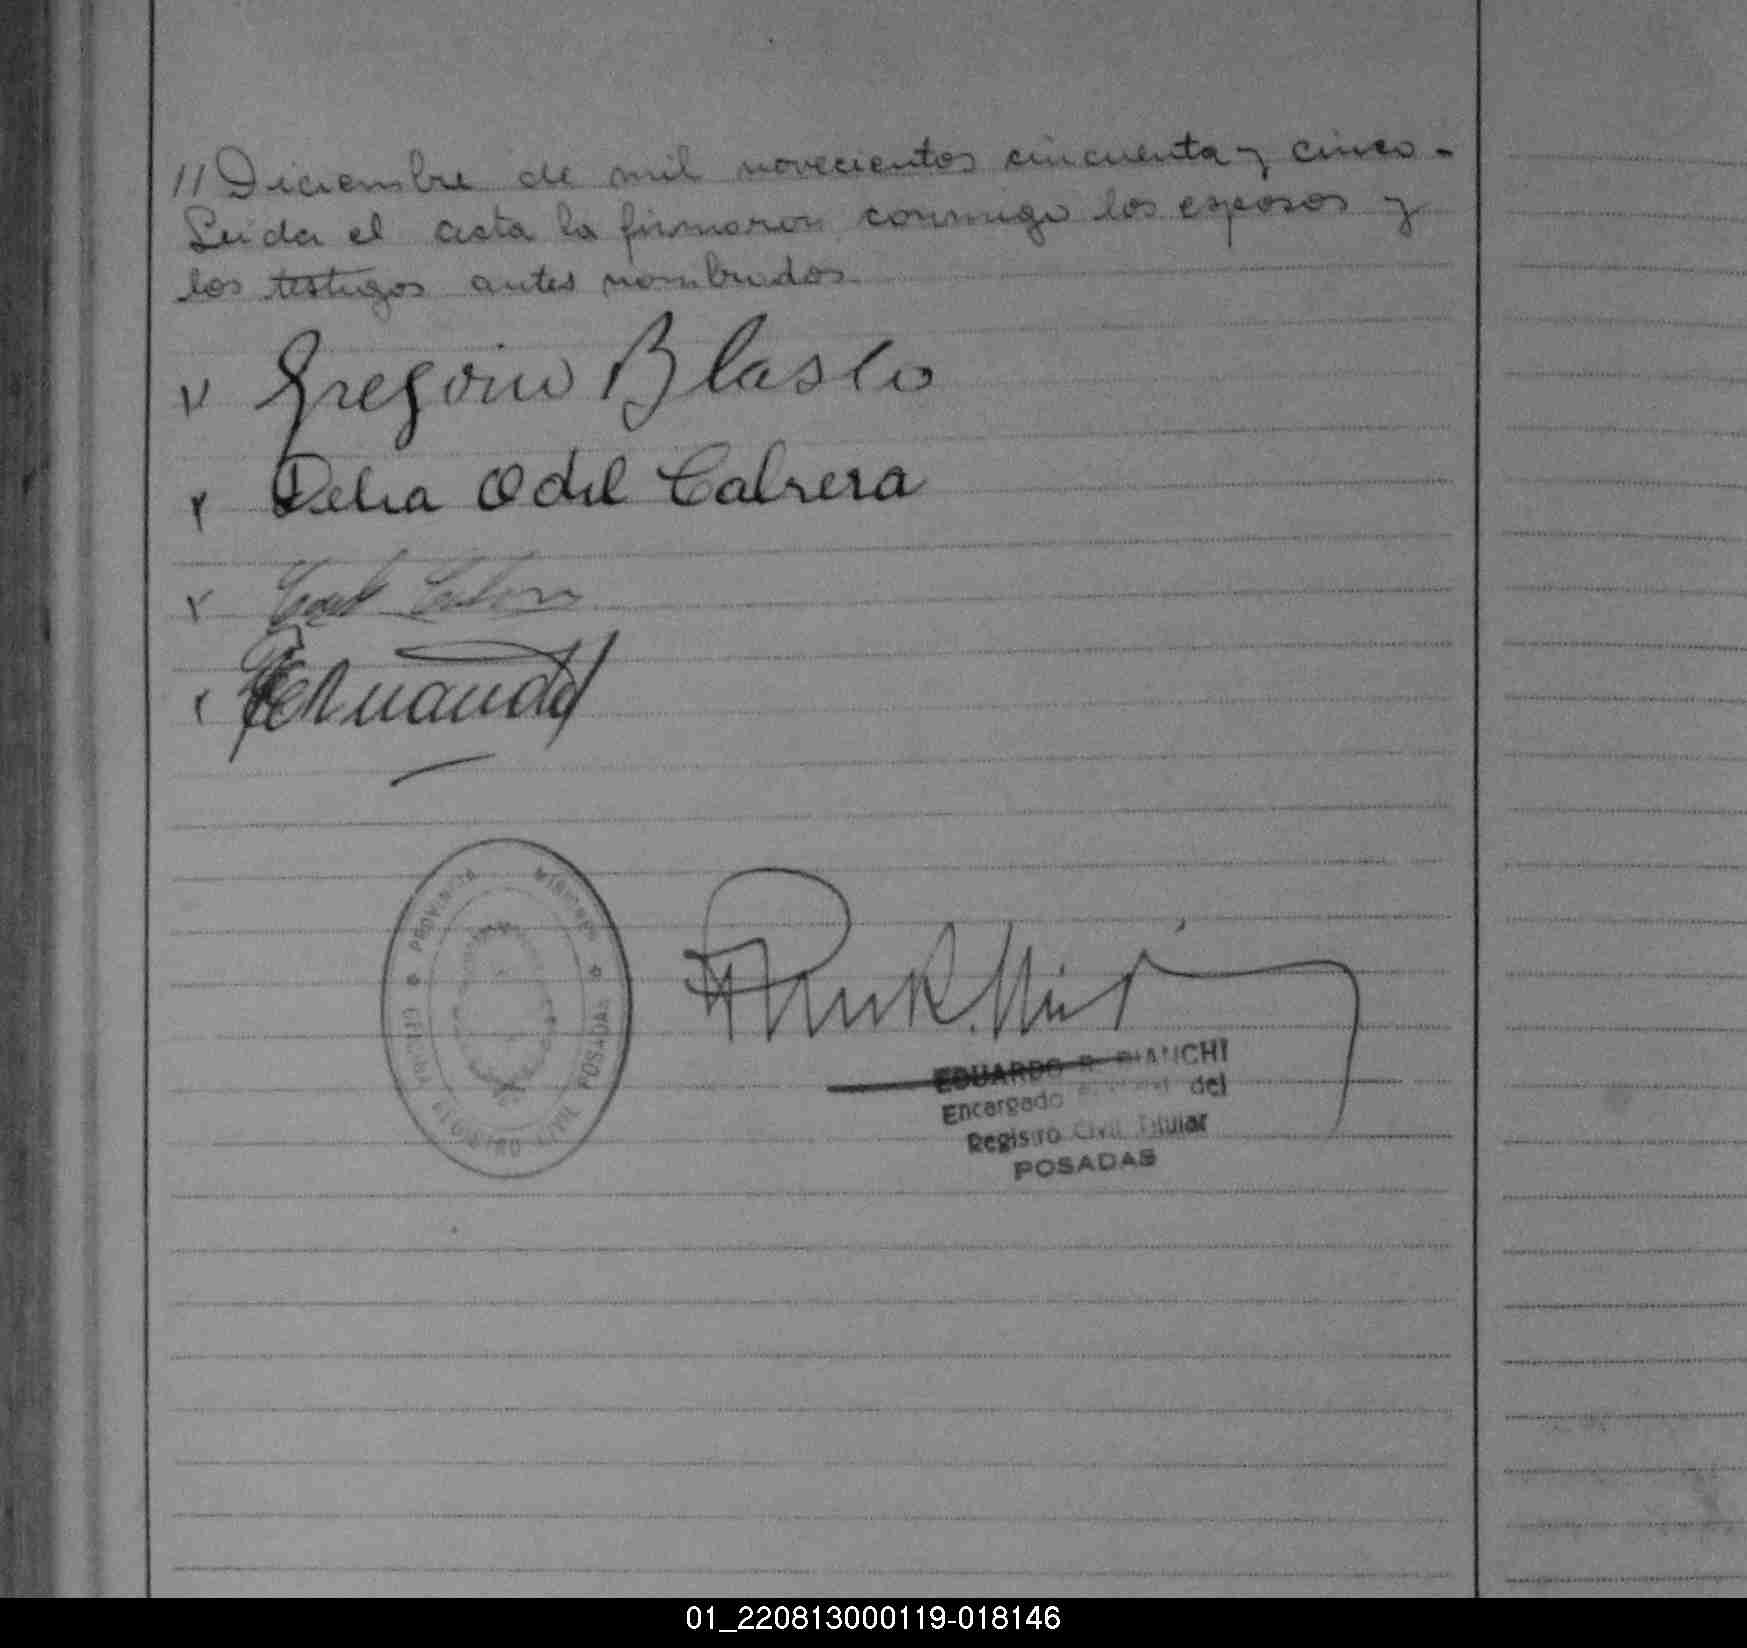 // Diciembre de mil novecientos cincuenta y cinco -
Leida el acta la firmaron conmigo los esposos y
los testigos antes nombrados
Gregorio Blasco
Delia Odil Cabrera
Fernandez
PROVINCIA MISIONES
REGISTRO CIVIL POSADAS
EDUARDO R. BIANCHI
Encargado del
Registro Civil Titular
POSADAS
01_220813000119-018146